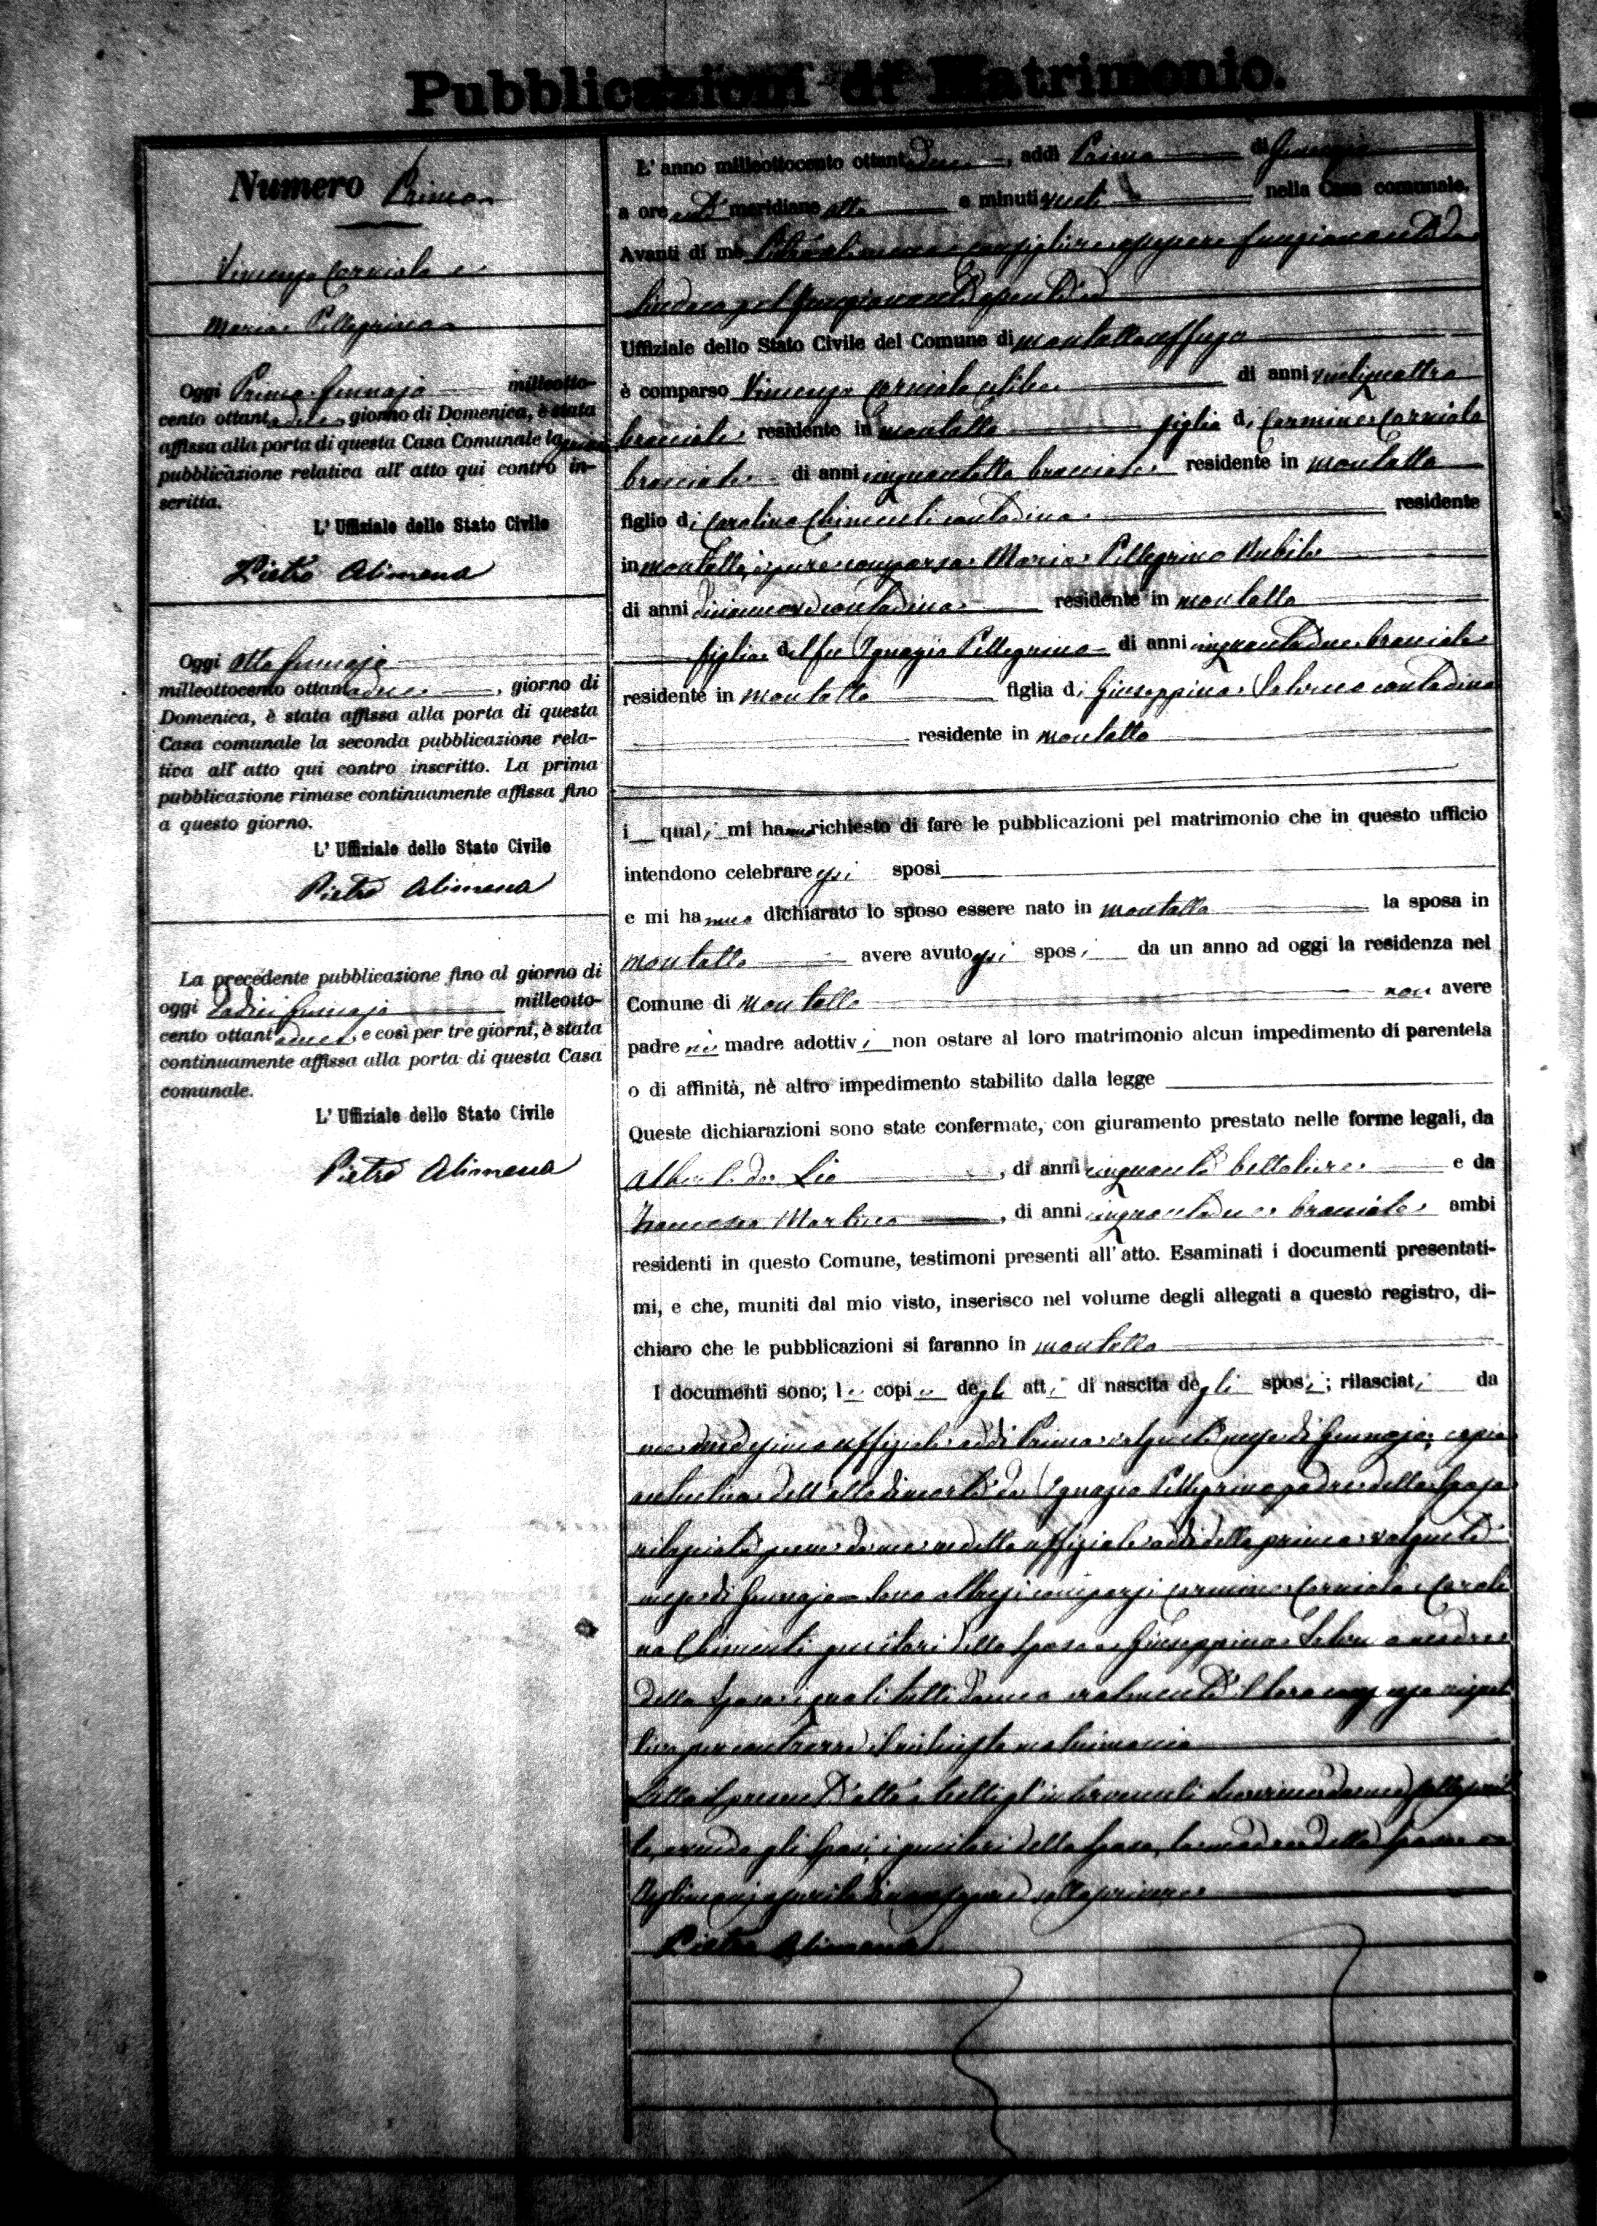 Pubblicazioni di Matrimonio.
Numero Primo
Vincenzo Corniola e
Maria Pellegrino
Oggi Primo Gennajo milleotto-
cento ottantadue giorno di Domenica, è stata
affissa alla porta di questa Casa Comunale la prima
pubblicazione relativa all' atto qui contro in-
scritta.
L' Uffiziale dello Stato Civile
Pietro Alimena
Oggi otto Gennajo
milleottocento ottantadue, giorno di
Domenica, è stata affissa alla porta di questa
Casa comunale la seconda pubblicazione rela-
tiva all' atto qui contro inscritto. La prima
pubblicazione rimase continuamente affissa fino
a questo giorno.
L' Uffiziale dello Stato Civile
Pietro Alimena
La precedente pubblicazione fino al giorno di
oggi dodici Gennajo milleotto-
cento ottantadue, e così per tre giorni, è stata
continuamente affissa alla porta di questa Casa
comunale.
L' Uffiziale dello Stato Civile
Pietro Alimena
L' anno milleottocento ottantadue, addì Primo di Gennajo
a ore anti meridiane otto e minuti venti nella Casa comunale.
Avanti di me Pietro Alimena consigliere funzionante da
Sindaco
Uffiziale dello Stato Civile del Comune di Montalto Uffugo
è comparso Vincenzo Corniola celibe di anni ventiquattro
bracciale residente in Montalto figlio di Carmine Corniola
bracciale di anni cinquantotto bracciale residente in Montalto
figlio di Carolina Chimenti contadina residente
in Montalto, è pure comparsa Maria Pellegrino Nubile
di anni diciannove contadina residente in Montalto
figlia del fu Ignazio Pellegrino di anni cinquantadue bracciale
residente in Montalto figlia di Giuseppina Salerno contadina
residente in Montalto
i quali mi hanno richiesto di fare le pubblicazioni pel matrimonio che in questo ufficio
intendono celebrare essi sposi
e mi hanno dichiarato lo sposo essere nato in Montalto la sposa in
Montalto avere avuto essi sposi da un anno ad oggi la residenza nel
Comune di Montalto non avere
padre nè madre adottivi non ostare al loro matrimonio alcun impedimento di parentela
o di affinità, nè altro impedimento stabilito dalla legge
Queste dichiarazioni sono state confermate, con giuramento prestato nelle forme legali, da
Alberto de Lio, di anni cinquanta bettoliere e da
Francesco Martino, di anni cinquantadue bracciale ambi
residenti in questo Comune, testimoni presenti all' atto. Esaminati i documenti presentati-
mi, e che, muniti dal mio visto, inserisco nel volume degli allegati a questo registro, di-
chiaro che le pubblicazioni si faranno in Montalto
I documenti sono; le copie degli atti di nascita degli sposi; rilasciati da
me medesimo uffiziale addì Primo volgente mese di Gennajo; copia
autentica dell'atto di morte di Ignazio Pellegrino padre della sposa
rilasciata pure da me uffiziale addì detto primo volgente
mese di Gennajo Sono altresì comparsi Carmine Corniola e Caroli
na Chimenti genitori dello sposo e Giuseppina Salerno madre
della sposa i quali tutti danno oralmente il loro
per contrarre il richiesto matrimonio
Letto il presente atto a tutti gl'intervenuti
gli sposi, i genitori dello sposo, la madre della sposa e
testimoni
Pietro Alimena